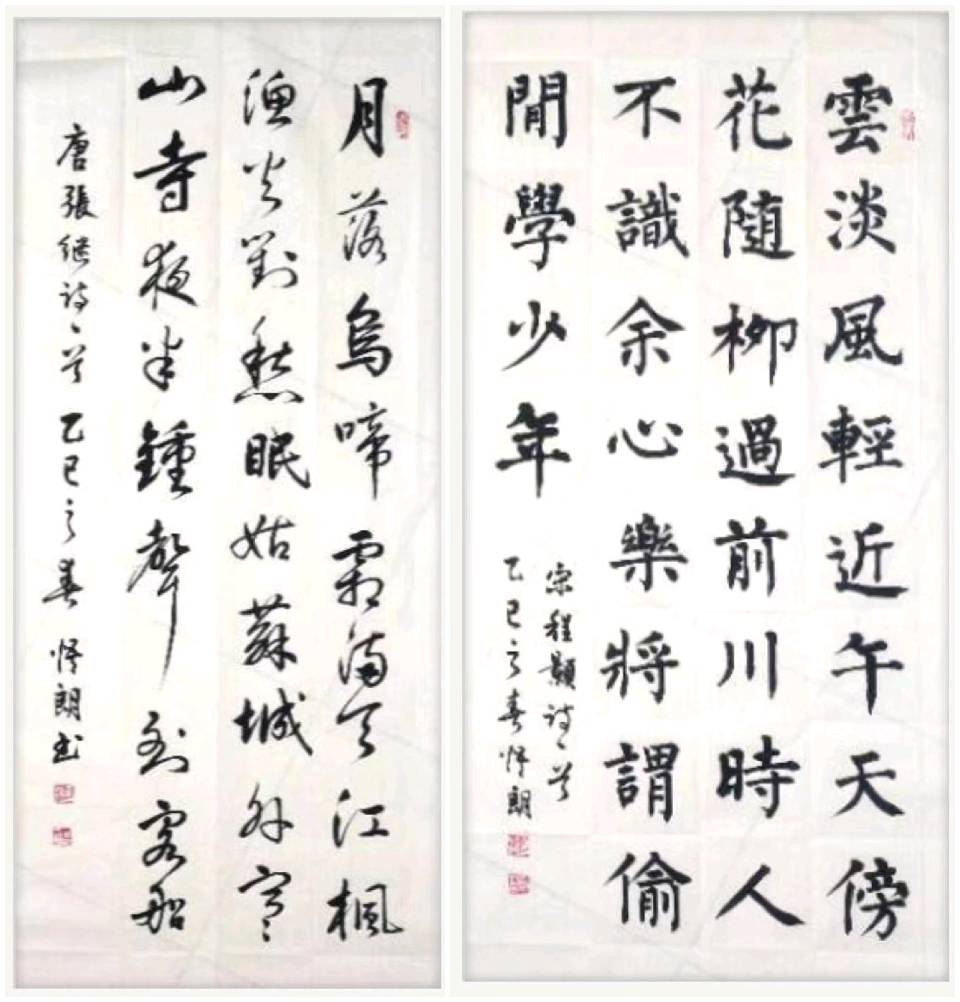 雲淡風輕近午天傍
花随柳過前川時人
不識余心樂將謂偷
閒學少年
宋程顥詩一首
乙巳之春悟朗
月落烏啼霜滿天江楓
漁火對愁眠姑蘇城外寒
山寺夜半鍾聲到客船
唐張继詩一首乙巳之春悟朗书